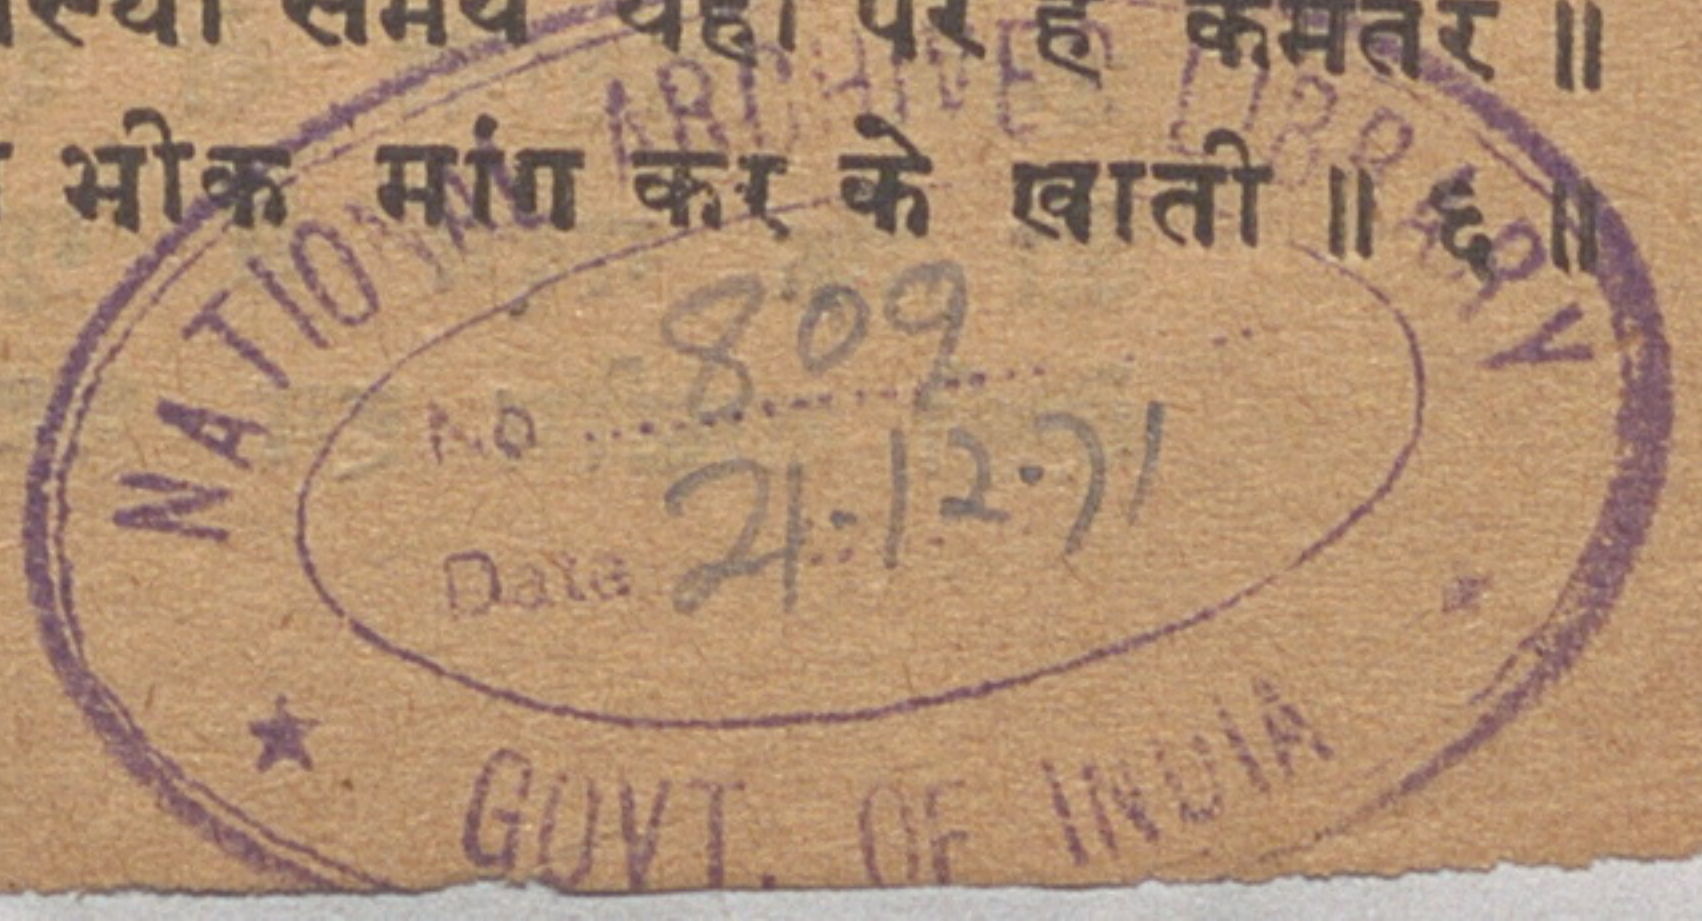 समय यहां पर है कमतर ॥
भीक मांग कर के खाती ॥ ६ ॥
NATIONAL ARCHIVES LIBRARY
No 809
Date 21.12.71
GOVT. OF INDIA